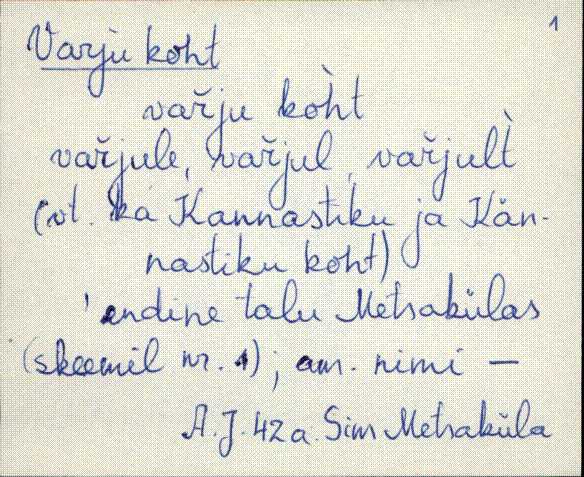 1
Varju koht
vařju kòht
vařjule, vařjul, vařjult̀
(vt. ka Kannastiku ja Kän-
nastiku koht)
' endine talu Metsakülas
(skeemil nr. 1); am. nimi —
A.J. 42 a. Sim Metsaküla